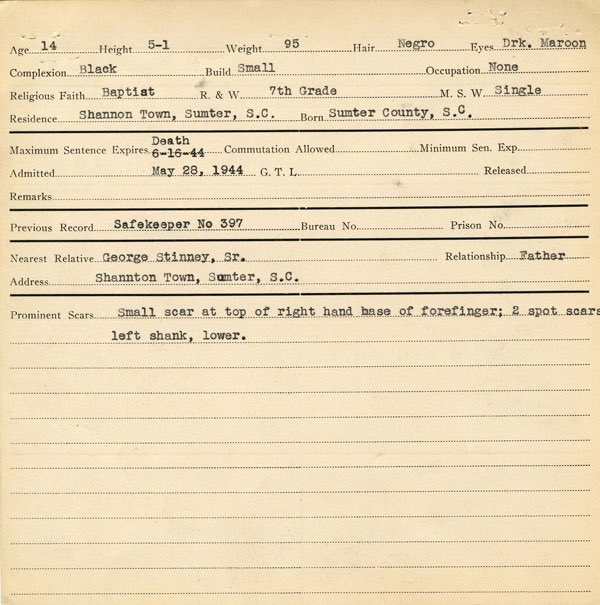 Age 14 Height 5-1 Weight 95 Hair Negro Eyes Drk. Maroon
Complexion Black Build Small Occupation None
Religious Faith Baptist R. & W. 7th Grade M. S. W. Single
Residence Shannon Town, Sumter, S.C. Born Sumter County, S.C.
Death
Maximum Sentence Expires 6-16-44 Commutation Allowed Minimum Sen. Exp.
Admitted May 28, 1944 G. T. L. Released
Remarks
Previous Record Safekeeper No 397 Bureau No. Prison No.
Nearest Relative George Stinney, Sr. Relationship Father
Address Shannton Town, Sumter, S.C.
Prominent Scars Small scar at top of right hand base of forefinger; 2 spot scars
left shank, lower.